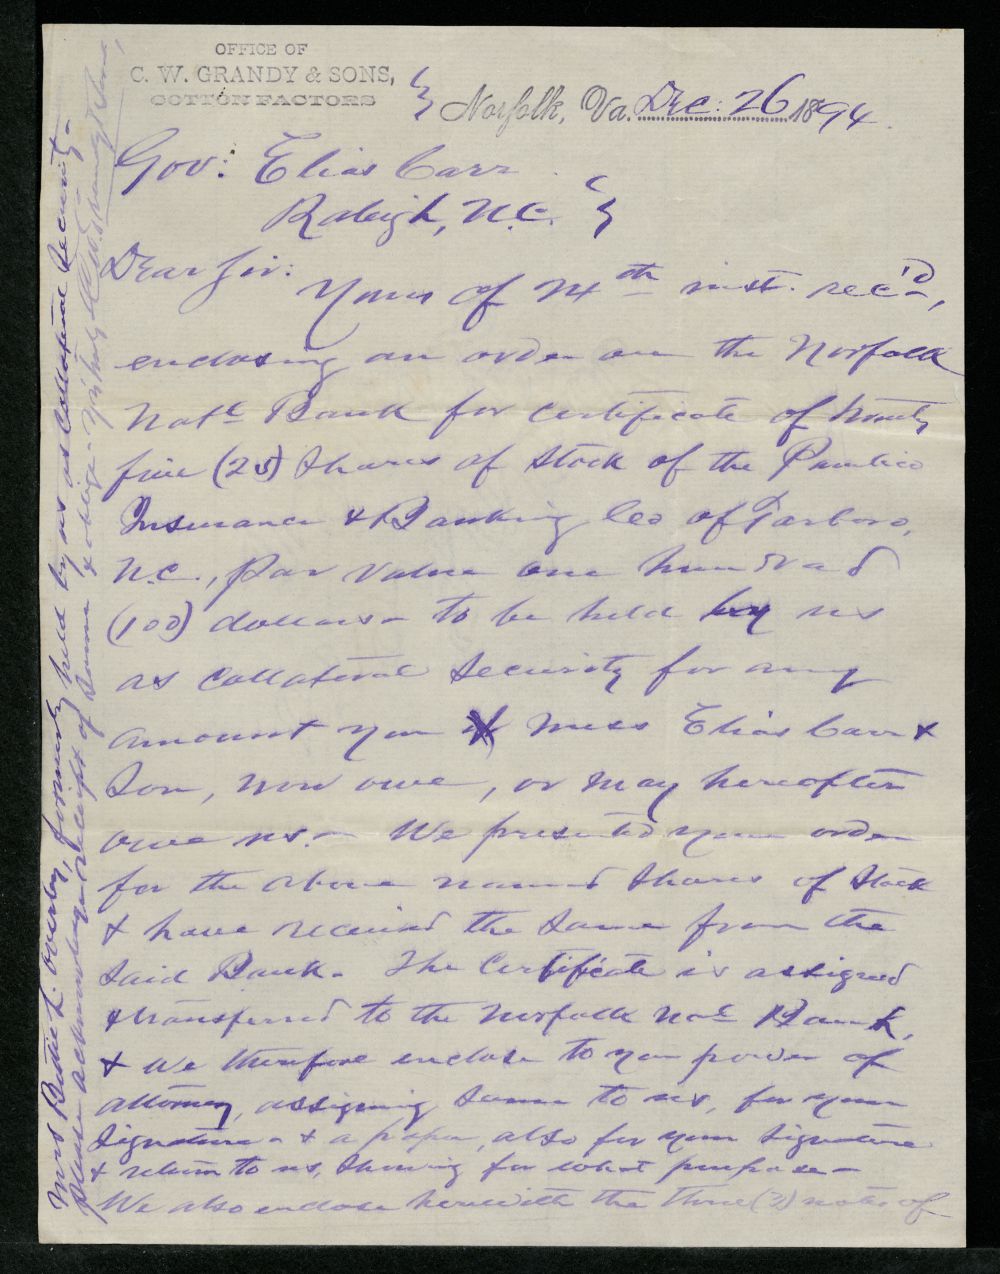 OFFICE OF
C. W. GRANDY & SONS,
COTTON FACTORS
Norfolk, Va. Dec: 26 1894.
Gov: Elias Carr
Raleigh, N.C.
Dear Sir:
Yours of 24th inst. rec'd,
enclosing an order on the Norfolk
Natl Bank for certificate of twenty
five (25) Shares of Stock of the Pamlico
Insurance & Banking Co of Tarboro,
N.C., par value one hundred
(100) dollars - to be held by us
as Collateral Security for any
amount you or Mess Elias Carr &
Son, now owe, or may hereafter
owe us. - We presented your order
for the above named Shares of Stock
& have received the Same from the
Said Bank - The Certificate is assigned
& transferred to the Norfolk Natl Bank,
& we therefore enclose to you power of
attorney, assigning Same to us, for your
Signature - & a paper, also for your Signature
& return to us, Showing for what purpose -
We also enclose herewith the three (3) notes of
Mrs Bettie L. Overby, formerly held by us as Collateral Security -
please acknowledge receipt of Same & oblige - Yrs truly C.W. Grandy & Sons,